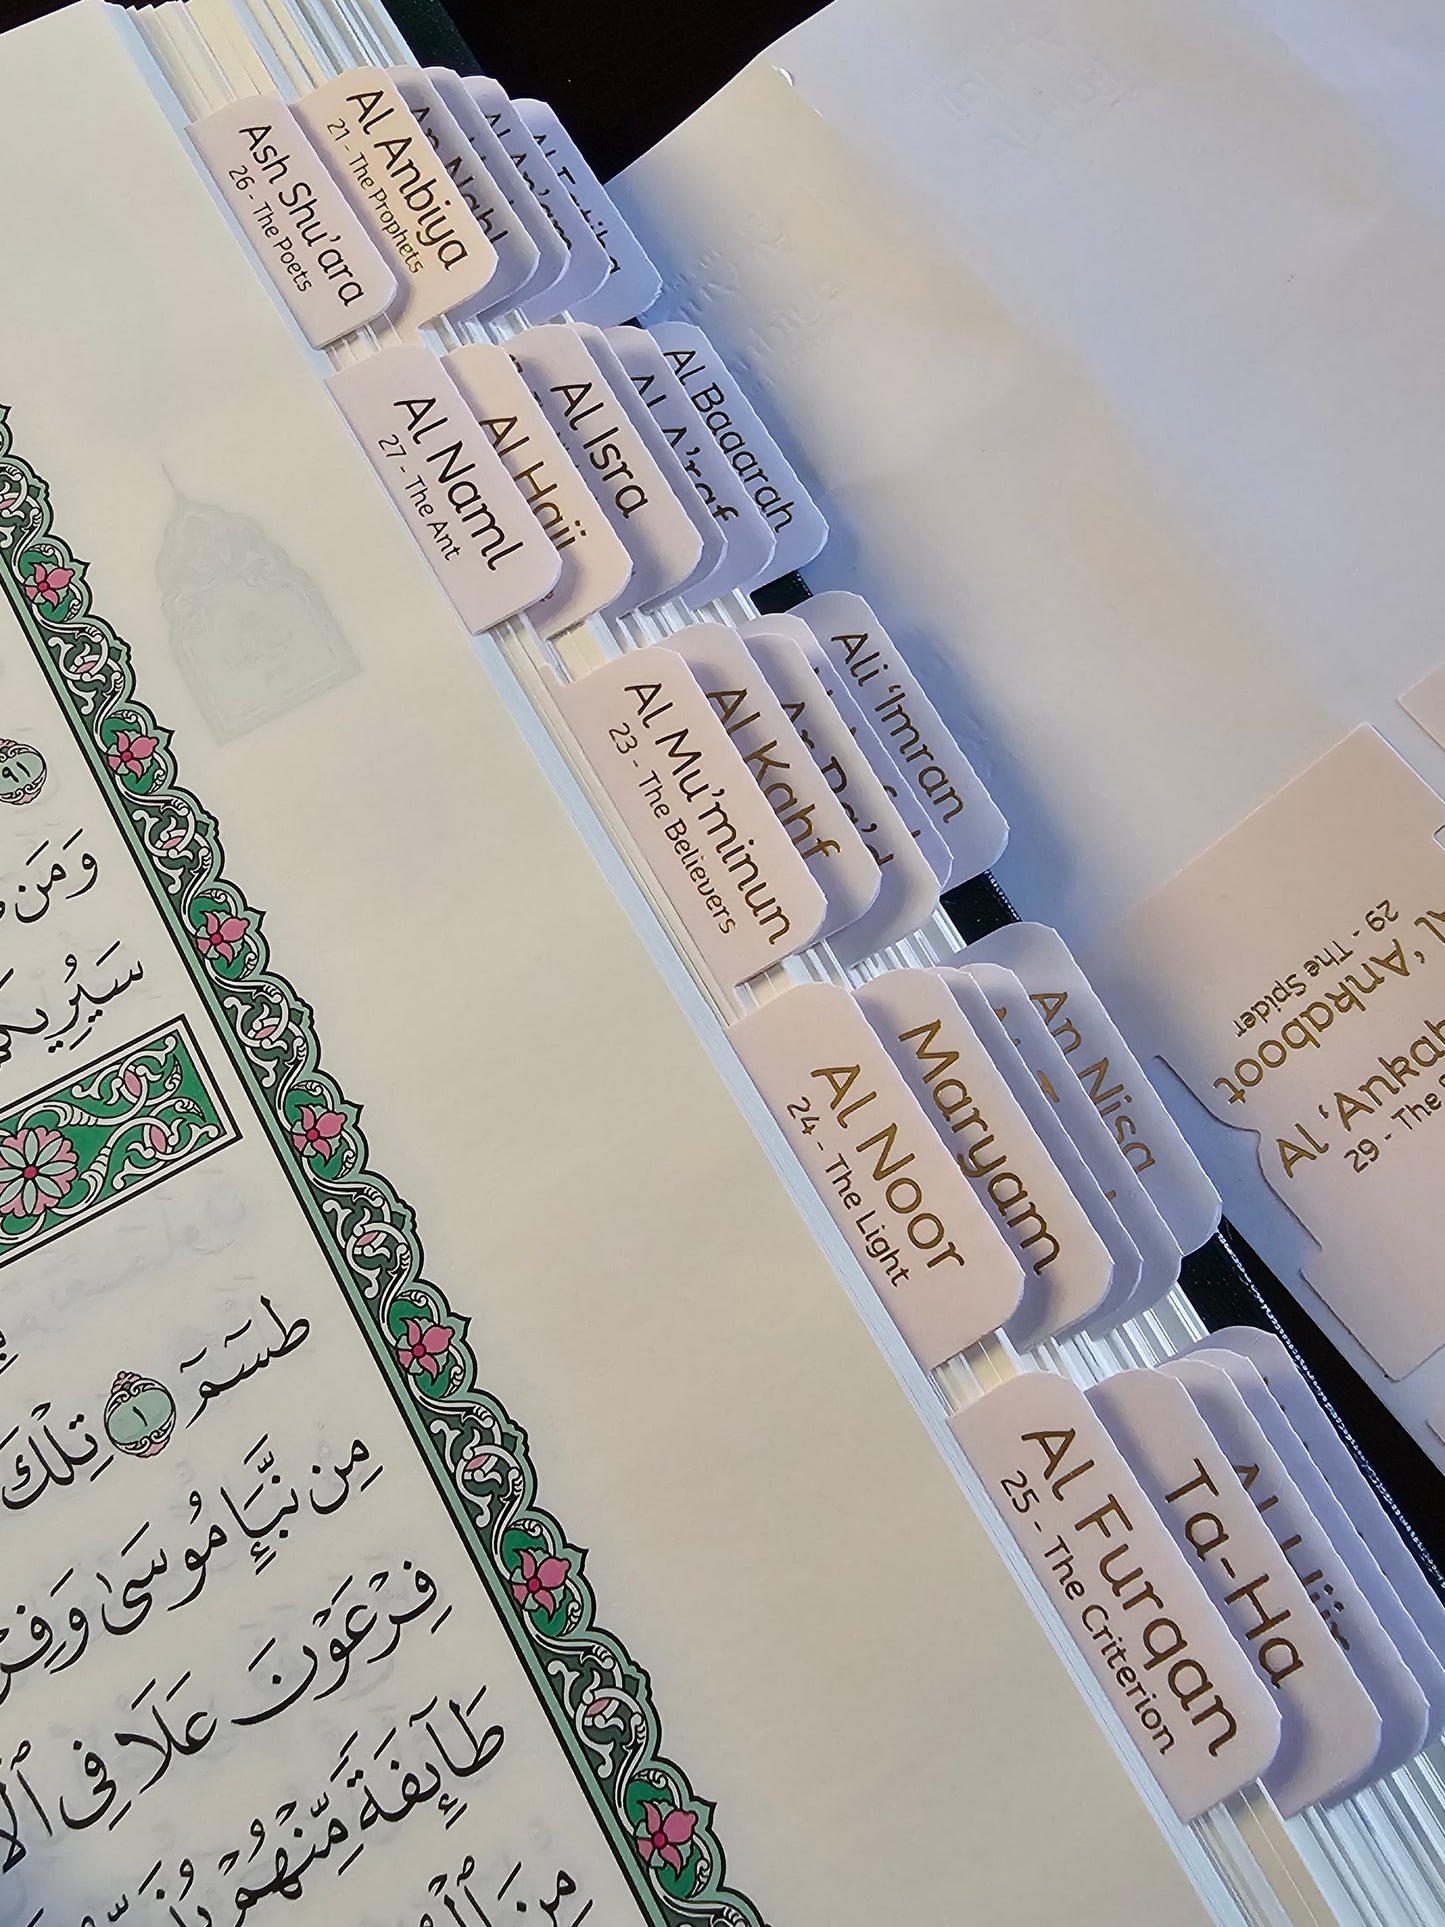 Ash Shu'ara
26 - The Poets
Al Anbiya
21 - The Prophets
An Nahl
Al An'am
Al Fatiha
Al Naml
27 - The Ant
Al Hajj
Al Isra
Al A'raf
Al Baqarah
Al Mu'minun
23 - The Believers
Al Kahf
Ar Ra'd
Ali 'Imran
Al Noor
24 - The Light
Maryam
An Nisa
Al Furqan
25 - The Criterion
Ta-Ha
Al Hijr
29 - The Spider
Al 'Ankaboot
Al 'Ankab
29 - The
٩١
وَمَن
سَيُرِيكُمْ
طسٓمٓ ١ تِلْكَ
مِن نَّبَإِ مُوسَىٰ وَفِرْ
فِرْعَوْنَ عَلَا فِي ٱلْأ
طَآئِفَةً مِّنْهُمْ يُذَبِّ
مِنَ ٱلْ